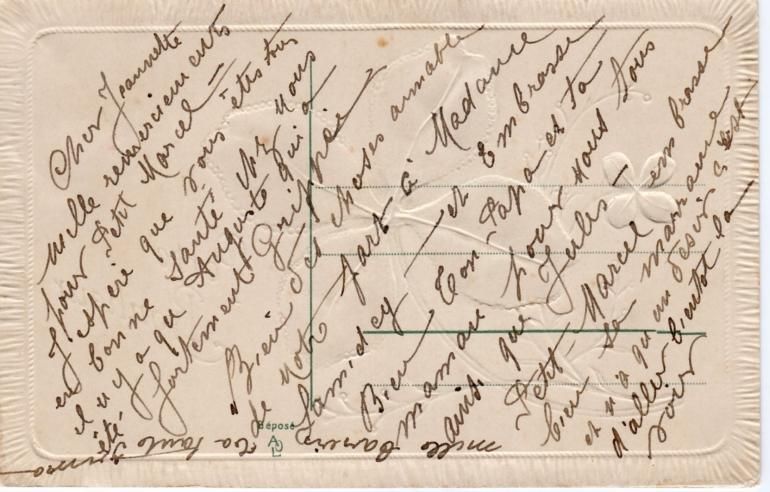 Cher Jeannette
mille remerciements
pour Petit Marcel =
J'espère que vous êtes tous
en bonne santé chez nous
il n y a qu Auguste qui a
été fortement Grippé
Bien des choses aimable
de notr part à Madame
Lamidey — et Embrasse
Bien Ton Papa et ta
maman pour nous tous
ainsi que Jules —
Petit Marcel embrasse
bien sa marraine
et n'a qu un désir c'est
d'aller bientot la
voir
mille Baisers
Ta tante
Déposé
A